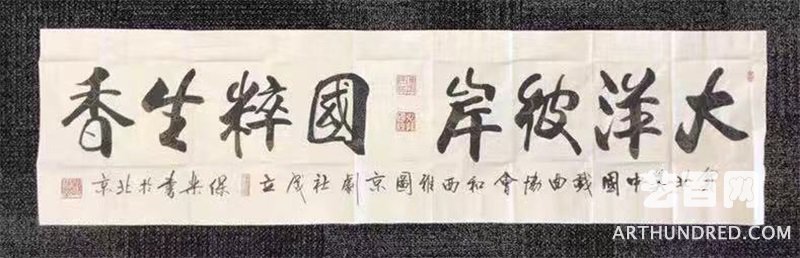 大洋彼岸 國粹生香
北美中國戲曲協會和西雅圖京劇社成立 保安書於北京
艺百网
ARTHUNDRED.COM